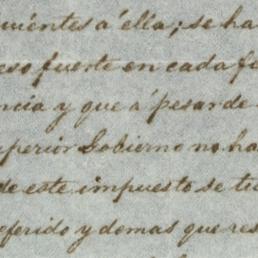 uientes a' ella; se ha
eso fuerte en cada f
ncia y que á pesar de
uperior Gobierno no ha
de este impuesto se ti
eferido y demas que res